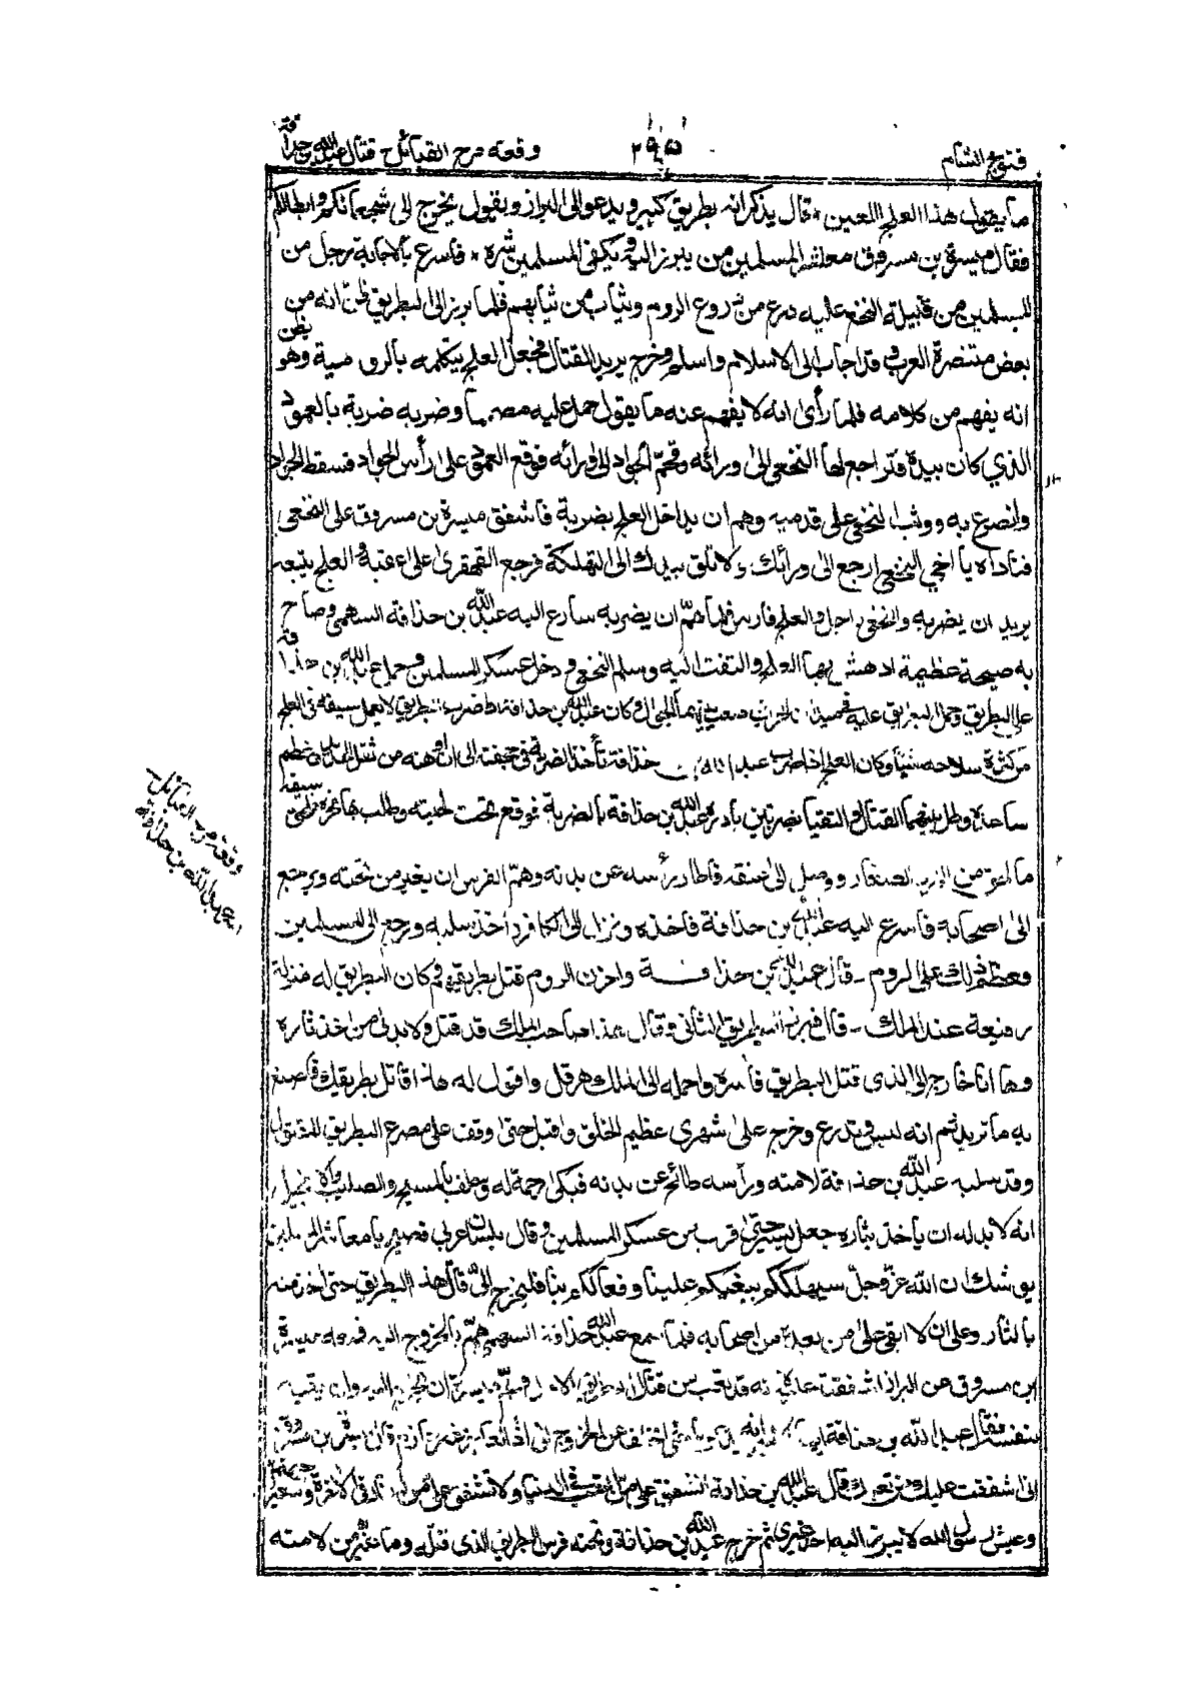 فتوح الشام ٢٩٥ وقعة مرج القبائل قتال عبد الله بن حذافة
ما يقول هذا العلج اللعين * قال يذكر انه بطريق كبير ويدعو الى البراز ويقول يخرج الى شجعانكم وابطالكم
فقال ميسرة بن مسروق معاشر المسلمين من يبرز اليه ويكفى المسلمين شره * فاسرع بالاجابة رجل من
المسلمين من قبيلة النخع عليه درع من دروع الروم وثياب من ثيابهم فلما برز الى البطريق ظن انه من
بعض متنصرة العرب وقد اجاب الى الاسلام واسلم وخرج يريد القتال فجعل العلج يتكلمه بالرومية وهو يظن
انه يفهم من كلامه فلما رأى انه لا يفهم عنه ما يقول حمل عليه مصمما وضربه ضربة بالعمود
الذي كان بيده فتراجع لها النخعى الى ورائه وقحم الجواد الى ورائه فوقع العمود على رأس الجواد فسقط الجواد
وانصرع به ووثب النخعى على قدميه وهم ان يداخل العلج بضربة فاشفق ميسرة بن مسروق على النخعى
فناداه يا اخى النخعى ارجع الى ورائك ولا تلق بيدك الى التهلكة فرجع القهقرى على اعقبه والعلج يتبعه
يريد ان يضربه والنخعى راجل والعلج فارس فلما هم ان يضربه سارع اليه عبد الله بن حذافة السهمى وصاح
به صيحة عظيمة ادهش بها العلج والتفت اليه وسلم النخعى ودخل عسكر المسلمين وحمل عبد الله بن حذافة
على البطريق وحمل البطريق عليه وكان عبد الله بن حذافة البطريق لا يعمل سيفه فى العلج
من كثرة سلاحه شيئا وكان العلج اذا ضرب عبد الله بن حذافة تأخذ الضربة فى حجفته الى ان اوهنه من ثقل
ساعده وطال بينهما القتال والتقيا بضربتين بادره عبد الله بن حذافة بالضربة فوقع تحت لحيته وطلب بها نحره سيفه
الصغار ووصل الى عنقه فاطار رأسه عن بدنه وهم الفرس ان يغير من تحته ويرجع
الى اصحابه فاسرع اليه عبد الله بن حذافة فاخذه ونزل الى الكافر واخذ سلبه ورجع الى المسلمين
وعظم ذلك على الروم - قال عبد الله بن حذافة واحزن الروم قتل بطريقهم وكان البطريق له منزلة
رفيعة عند الملك - قال فبرز البطريق الثانى وقال هذا صاحب الملك قد قتل ولا بد لى من اخذ ثاره
وها انا خارج الى الذى قتل البطريق فأسره واحمله الى الملك هرقل واقول له هذا قاتل بطريقك فاصنع
به ما تريد ثم انه لبس وتدرع وخرج على شهرى عظيم الخلق واقبل حتى وقف على مصرع البطريق المقتول
وقد سلب عبد الله بن حذافة لامته ورأسه طائح عن بدنه فبكى رحمة له وحلف بالمسيح والصليب والانجيل
انه لا بد له ان يأخذ بثاره جعل يسير حتى قرب من عسكر المسلمين وقال بلسان عربى فصيح يا معاشر المسلمين
يوشك ان الله عز وجل سيهلككم ببغيكم علينا وفعالكم بنا فليخرج الى قاتل هذا البطريق حتى اخذ منه
بالثار وعلى ان لا ابقى على من بعده من اصحابه فلما سمع عبد الله حذافة السهمى هم بالخروج اليه فمنعه ميسرة
ابن مسروق عن البراز اشفقت عليه انه قد تعب من قتال البطريق الاول وهم ميسرة ان يخرج اليه وان يلقيه
بنفسه فقال عبد الله بن حذافة عن الخروج قال ميسرة بن مسروق
انى شفقت عليك من تعبك قال عبد الله بن حذافة اتشفق على من تعب الدنيا ولا تشفق على من
وعيش رسول الله لا يبرز اليه احد غيرى ثم خرج عبد الله بن حذافة وتحته فرس البطريق الذى قتله وما غير من لامته
وقعة مرج القبائل
عبد الله بن حذافة